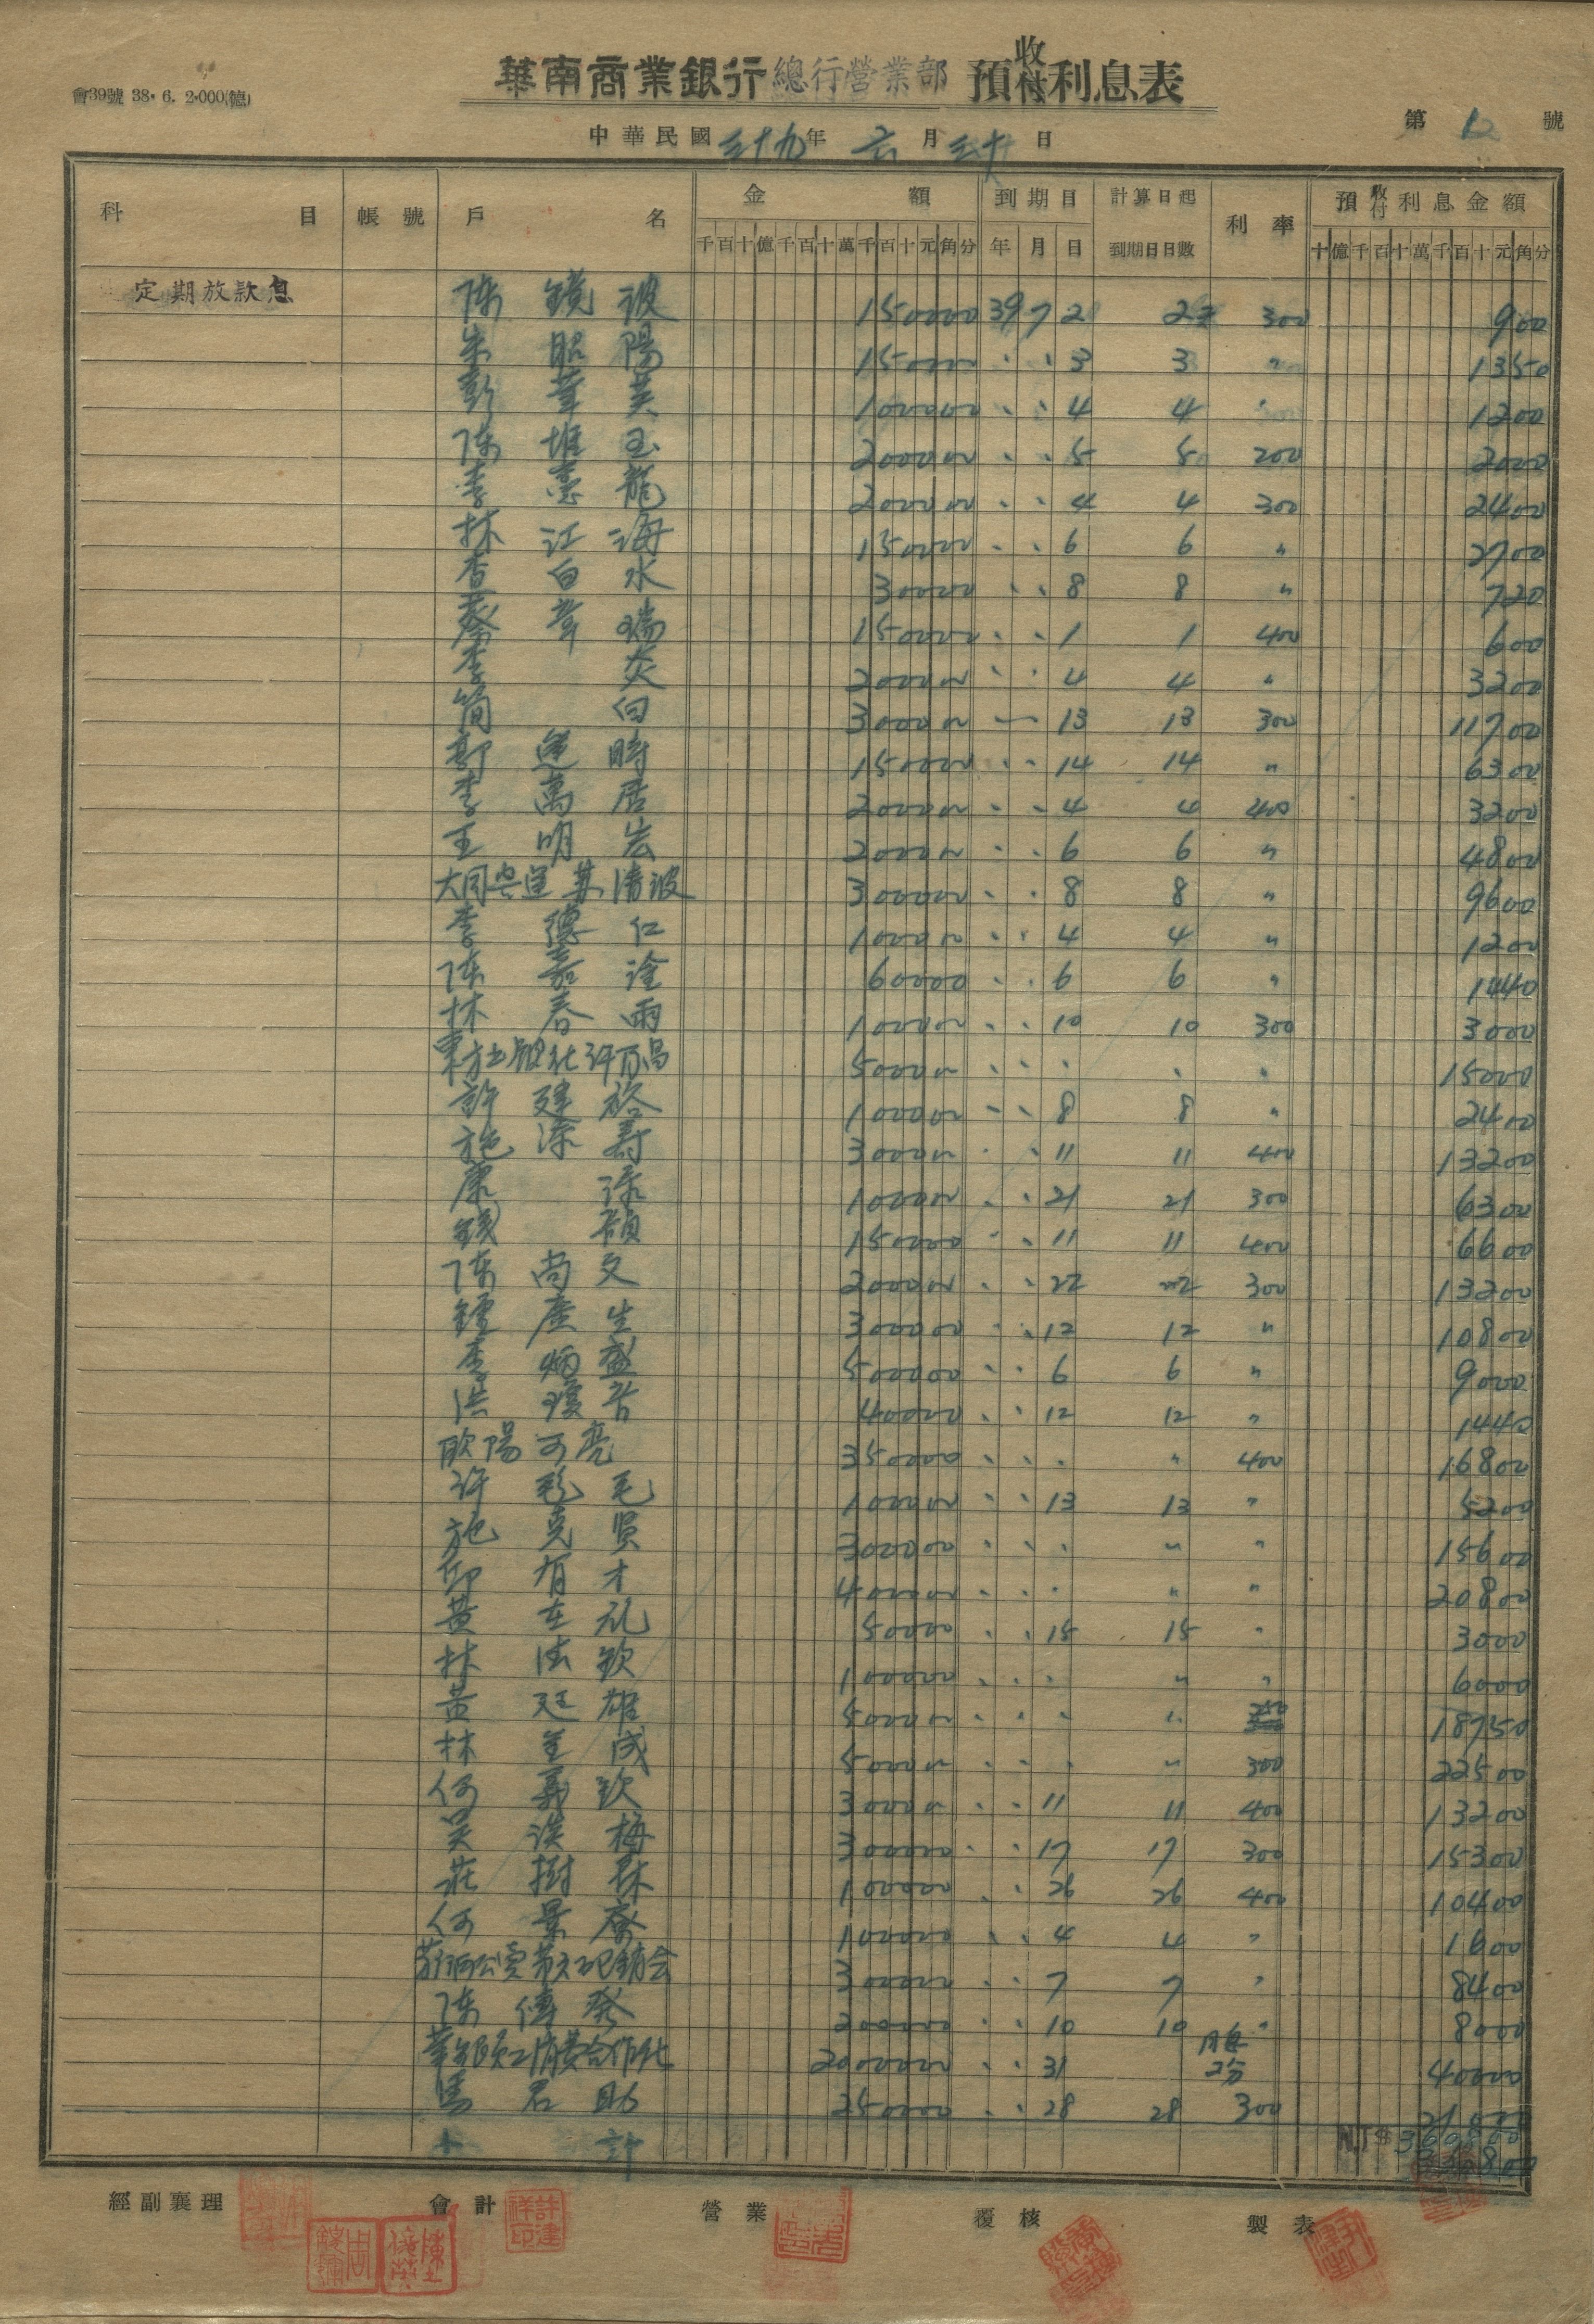 會39號 38. 6. 2.000(德)
華南商業銀行 總行營業部 預收付利息表
中華民國三十九年 六 月 三十 日
第 12 號
科目 帳號 戶名 金額 到期日 計算日起到期日日數 利率 預收付利息金額
千百十億千百十萬千百十元角分 年 月 日 十億千百十萬千百十元角分
定期放款息 陳鏡波 150000 39 7 2 2 300 900
朱昭陽 150000 〃 〃 3 3 〃 1350
彭華英 100000 〃 〃 4 4 〃 1200
陳堆玉 200000 〃 〃 5 5 200 2000
李憲龍 200000 〃 〃 4 4 300 2400
林江海 150000 〃 〃 6 6 〃 2700
杏白水 30000 〃 〃 8 8 〃 720
蔡章瑞 150000 〃 〃 1 1 400 600
李炎 200000 〃 〃 4 4 〃 3200
簡白 300000 〃 〃 13 13 300 11700
郭運時 150000 〃 〃 14 14 〃 6300
李萬居 200000 〃 〃 4 4 400 3200
王明宏 200000 〃 〃 6 6 〃 4800
大同 蘇清波 300000 〃 〃 8 8 〃 9600
李德仁 100000 〃 〃 4 4 〃 1200
陳嘉淦 60000 〃 〃 6 6 〃 1440
林春雨 100000 〃 〃 10 10 300 3000
東方出版社 許百昌 500000 〃 〃 〃 〃 〃 15000
許建裕 100000 〃 〃 8 8 〃 2400
施深壽 300000 〃 〃 11 11 400 13200
康添 100000 〃 〃 21 21 300 6300
錢碩 150000 〃 〃 11 11 400 6600
陳尚文 200000 〃 〃 22 22 300 13200
鍾慶生 300000 〃 〃 12 12 〃 10800
李炳盛 500000 〃 〃 6 6 〃 9000
洪瓊 40000 〃 〃 12 12 〃 1440
歐陽可亮 350000 〃 〃 〃 〃 400 16800
許彭毛 100000 〃 〃 13 13 〃 5200
施克賢 300000 〃 〃 〃 〃 〃 15600
仰有才 400000 〃 〃 〃 〃 〃 20800
黃在礼 50000 〃 〃 15 15 〃 3000
林清欽 100000 〃 〃 〃 〃 〃 6000
黃廷雄 500000 〃 〃 〃 〃 250 18750
林金成 500000 〃 〃 〃 〃 300 22500
何義欽 300000 〃 〃 11 11 400 13200
吳漢梅 300000 〃 〃 17 17 300 15300
莊樹林 100000 〃 〃 26 26 400 10400
何景寮 100000 〃 〃 4 4 〃 1600
配銷会 300000 〃 〃 7 7 〃 8400
陳傳發 200000 〃 〃 10 10 〃 8000
合作社 2000000 〃 〃 31 月息2分 40000
馬君助 250000 〃 〃 28 28 300 21000
小計 NT$
經副襄理 會計 營業 覆核 製表
許建祥印